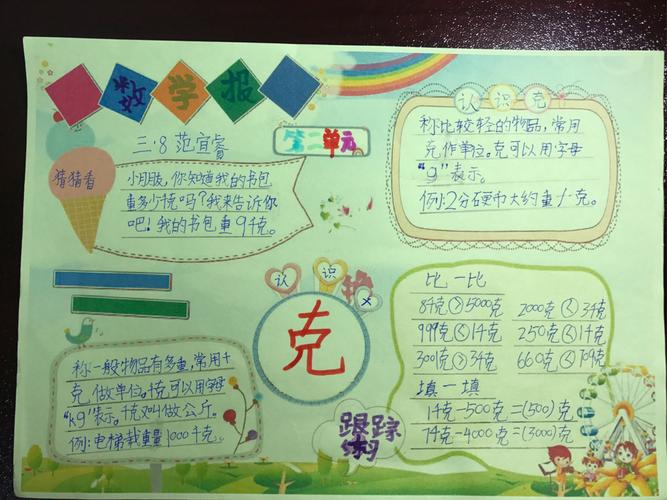 数学报
三.8 范宜睿
第二单元
猜猜看
小朋友,你知道我的书包
重多少千克吗?我来告诉你
吧!我的书包重9千克。
认识克
称比较轻的物品,常用
克作单位。克可以用字母
“g”表示。
例:2分硬币大约重1克。
认识
克
称一般物品有多重,常用千
克做单位。千克可以用字母
“kg”表示。千克又叫做公斤。
例:电梯载重量1000千克。
比一比
8千克>5000克 2000克<3千克
999克<1千克 250克<1千克
3001克>3千克 660克<10千克
填一填
1千克-500克=(500)克
7千克-4000克=(3000)克
跟踪
练习